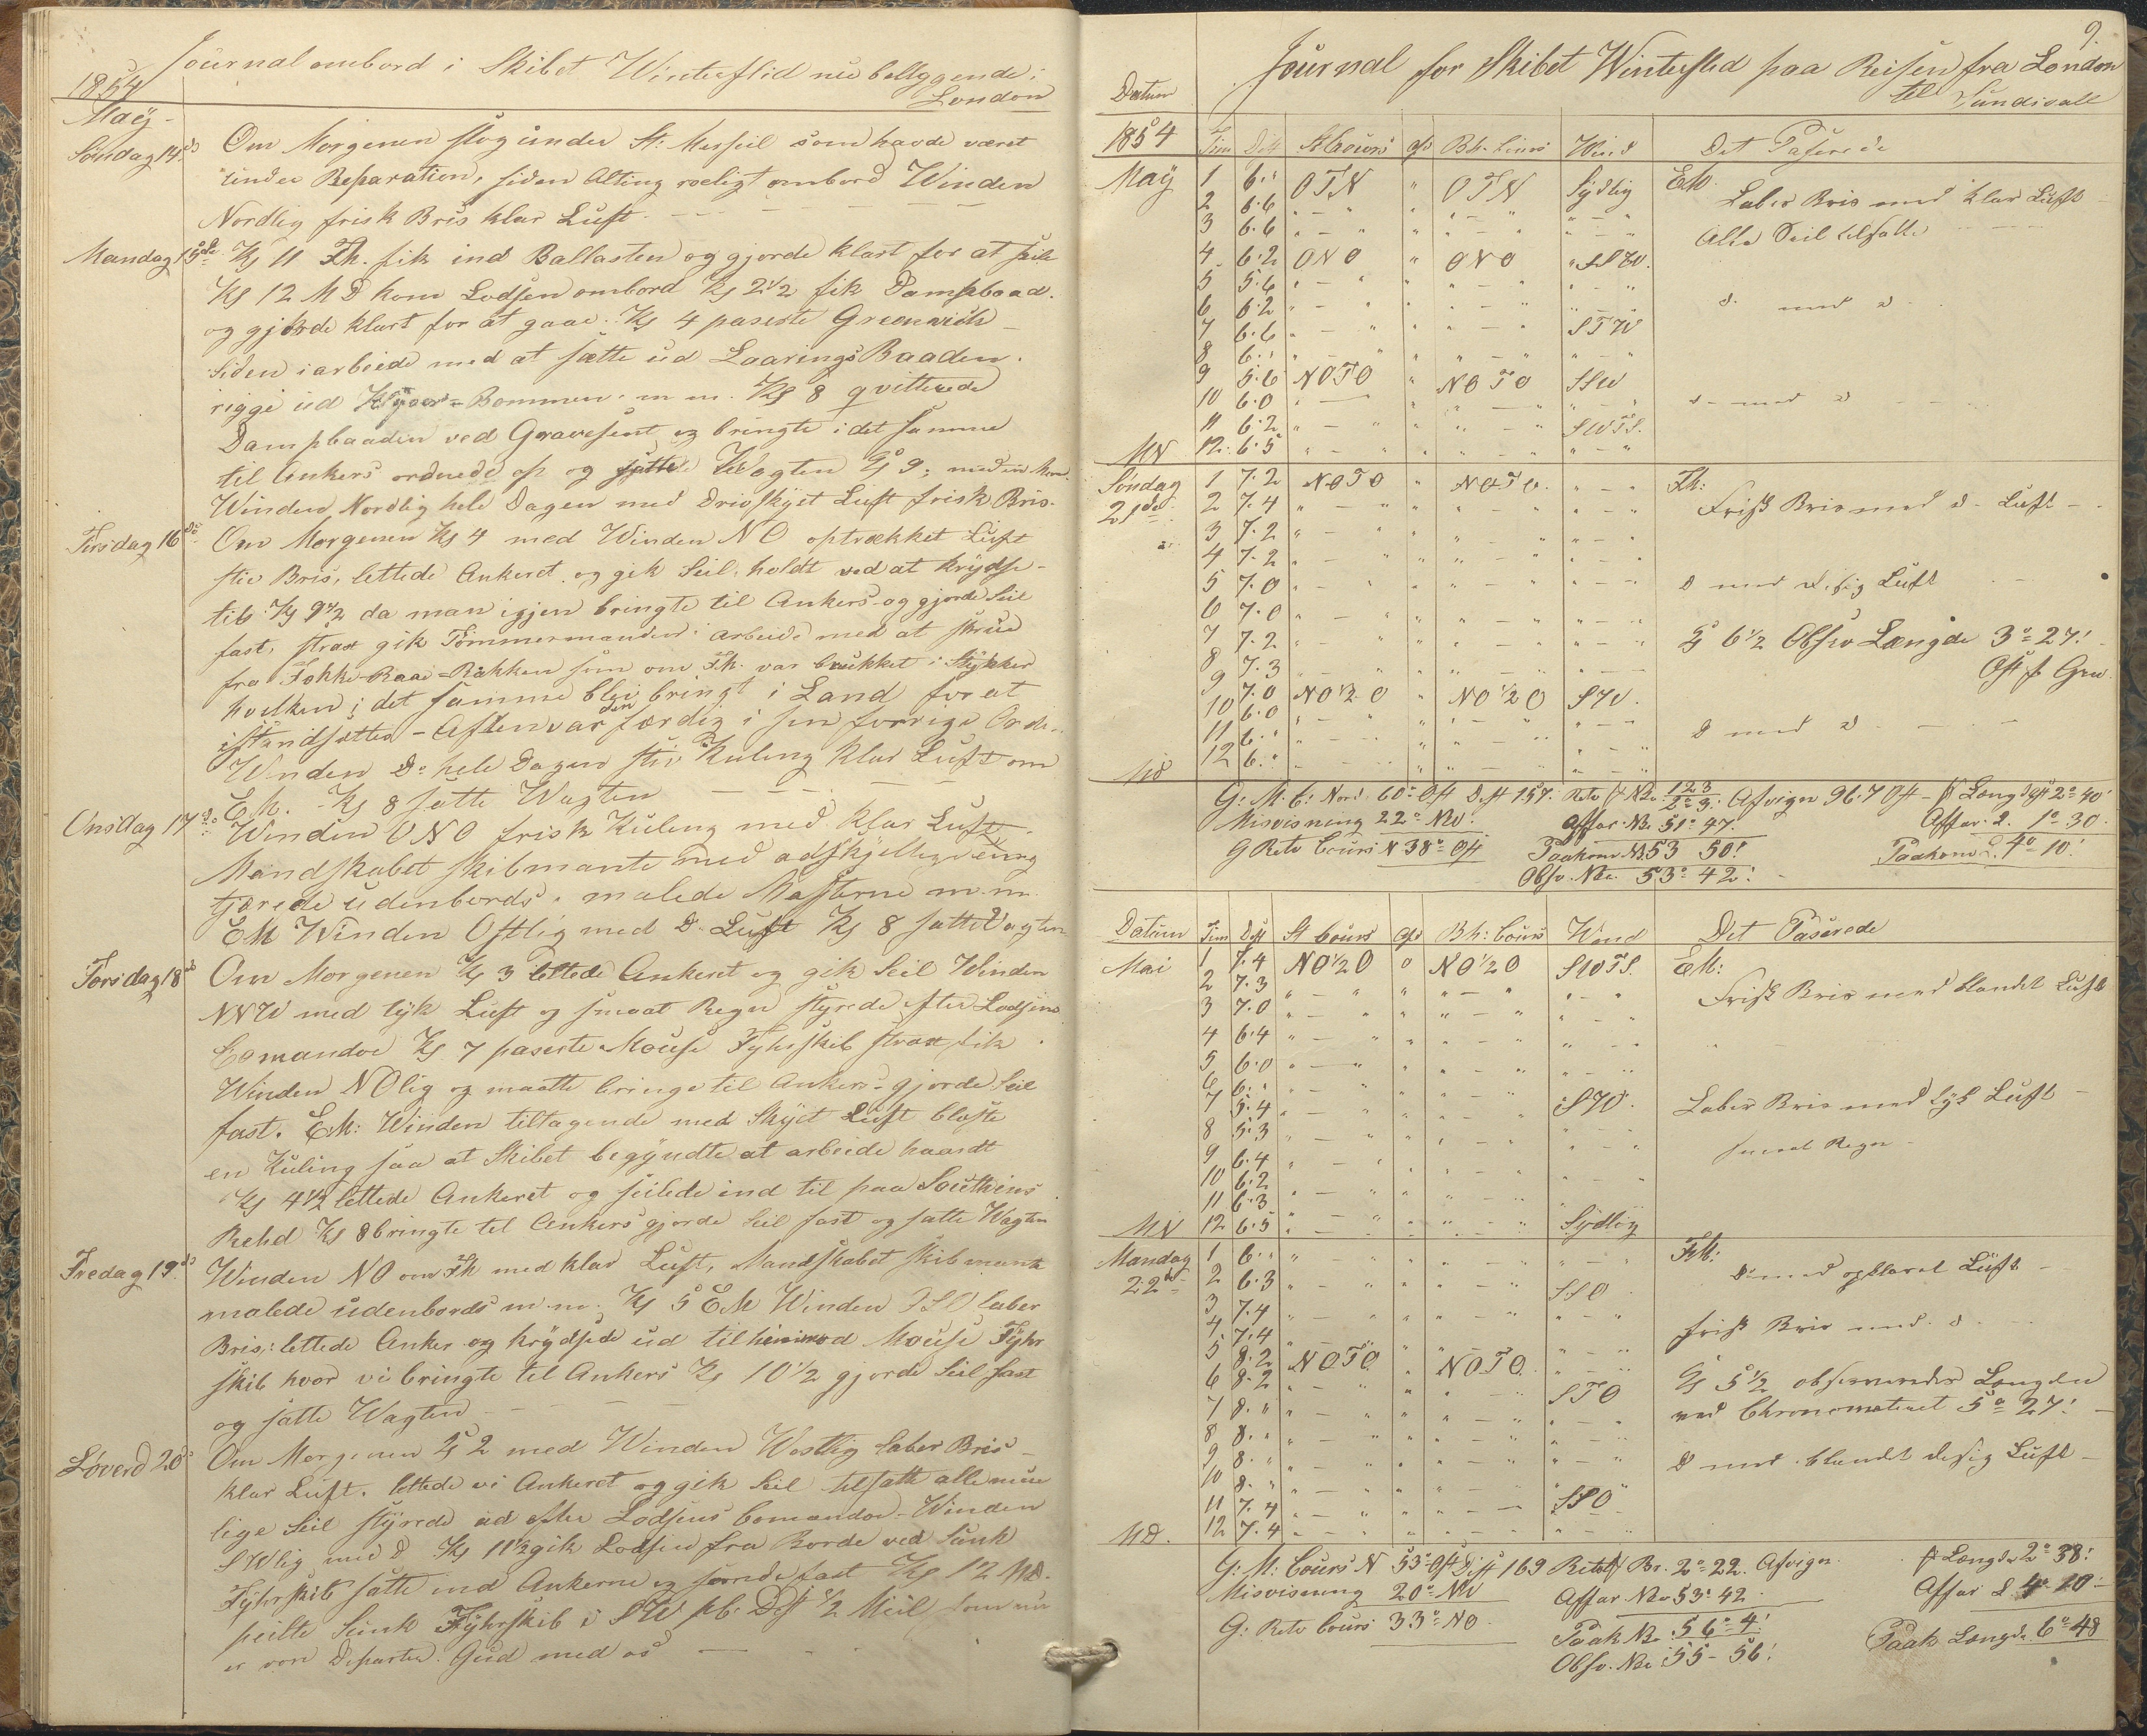 Journal ombord i Skibet Winterflid nu beliggende i
London
1854
Maÿ
Søndag 14de Om Morgenen slog under St: Merseil som havde været
under Reparation, siden Alting roeligt ombord Winden
Nordlig frisk Bris klar Luft
Mandag 15de Kl 11 Fh. fik ind Ballasten og gjorde klart for at seile
Kl 12 MD kom Lodsen ombord Kl 2 1/2 fik Dampbaad.
og gjorde klart for at gaae. Kl 4 paserte Greenwich
Siden i arbeide med at sætte ud LaaringsBaaden.
rigge ud Bommen m m. Kl 8 qvitterede
Dampbaaden ved Gravesent og bringte i det samme
til Ankers ordnede op og satte Wagten Kl 9;
Winden Nordlig hele Dagen med Drivskÿet Luft frisk Bris
Tirsdag 16de Om Morgenen Kl 4 med Winden NO optrækket Luft
stiv Bris, lettede Ankeret og gik Seil, holdt ved at krÿdse
til Kl 9 1/2 da man igjen bringte til Ankers og gjorde Seil
fast, strax gik Tømmermanden i arbeide med at skrue
fra Fokke-Raae-Rakken som om Fh. var brukket i Stÿkker
hvilken i det samme blev bringt i Land for at
istandsættes - Aften var den færdig i sin forrige Orden
Winden Do hele Dagen stiv Kuling klar Luft om
Eh. Kl 8 satte Wagten
Onsdag 17de Winden ONO frisk Kuling med klar Luft
Mandskabet skibmante med adskjelligt
tjærede udenbords, malede Masterne m.m.
EM Winden Ostlig med Do Luft Kl 8 satte Vagten
Torsdag 18de Om Morgenen Kl 3 lettede Ankeret og gik Seil Winden
NNW med tÿk Luft og smaat Regn stÿrede efter Lodsens
Comandoe Kl 7 paserte Mouse Fÿhrskib strax fik
Winden NOlig og maatte bringe til Ankers - gjorde Seil
fast. EM: Winden tiltagende med Skÿet Luft blæste
en Kuling saa at Skibet begÿndte at arbeide haardt
Kl 4 1/2 lettede Ankeret og seilede ind til paa Southens
Rehd Kl 8 bringte til Ankers gjorde Seil fast og satte Wagten
Fredag 19de Winden NO om Fh med klar Luft, Mandskabet skibmante
malede udenbords m.m. Kl 5 EM Winden OSO laber
Bris: lettede Anker og krÿdsede ud til henimod Mouse Fÿhr
skib hvor vi bringte til Ankers Kl 10 1/2 gjorde Seil fast
og satte Wagten
Løverd 20de Om Morgenen Kl 2 med Winden Westlig laber Bris
klar Luft. lettede vi Ankeret og gik Seil tilsatte alle mue
lige Seil stÿrede ud efter Lodsens Comandoe - Winden
SWlig med Do Kl 11 1/2 gik Lodsen fra Borde ved Sunk
Fÿhrskib satte ind Ankerne og fast Kl 12 MD.
peilte Sunk Fÿhrskib i SW pb: Dist 1/2 Miil som nu
er vor Departer. Gud med os
9.
Journal for Skibet Winterflid paa Reisen fra London
til Sundsvall
Datum
1854 Tim Dist St Cours Afd Bh. Cours Wind Det Paserede
Maÿ 1 6." OTN " OTN Sÿdlig EM.
2 6.6 Laber Bris med klar Luft
3 6.6 Alle Seil tilsatte
4 6.2 ONO " ONO SSW.
5 5.6
6 6.2 do med do
7 6.6 STW
8 6."
9 5.6 NOTO " NOTO SSW
10 6.0 do med do
11 6.2 SWTS.
MN 12 6.5
Søndag 1 7.2 NOTO " NOTO Fh:
21de 2 7.4 Frisk Bris med do Luft
3 7.2
4 7.2
5 7.0 do med disig Luft
6 7.0
7 7.2 Kl 6 1/2 Obsv Længde 3° 27'
8 7.3 Ost f Grw
9 7.0 NO 1/2 O " NO 1/2 O SW.
10 6.0
11 6." do med do
MD 12 6."
G: M. C: Nord 60° Ost Dist 157. Retv f Bre 123 / 2° 3' Afvign 96.7 Ost - f Længd Ost 2° 40'
Misvisning 22° NW. Affar. Bre 51° 47' Affar. L. 1° 30'
G Retv Cours N 38° Ost Paakom Br 53 50' Paakom L. 4° 10'
Obsv. Bre 53° 42'
Datum Tim Dist St Cours Afd Bh: Cours Wind Det Paserede
Mai 1 7.4 NO 1/2 O 0 NO 1/2 O SWTS. EM:
2 7.3 Frisk Bris med blandet Luft
3 7.0
4 6.4
5 6.0
6 6."
7 5.4 SW. Laber Bris med tÿk Luft
8 5.3 smaat Regn
9 6.4
10 6.2
11 6.3
MN 12 6.5 Sÿdlig
Mandag 1 6." FM:
22de 2 6.3 SSO do med opklaret Luft
3 7.4
4 7.4 frisk Bris med do
5 8.2 NOTO " NOTO.
6 8.2 STO Kl 5 1/2 observeredes Længden
7 8." ved Chronometeret 5° 27'
8 8."
9 8." do med blandt disig Luft
10 8."
11 7.4 SSO
MD. 12 7.4
G: M: Cours N 53° Ost Dist 169 Retv f Br. 2° 22. Afvign f Længde 2° 38'
Misvisning 20° NW Affar Bre 53° 42 Affar L 4° 10'
G: Retv Cours 33° NO Paak Br. 56° 4' Paak Længde 6° 48
Obsv. Bre 55 - 56'